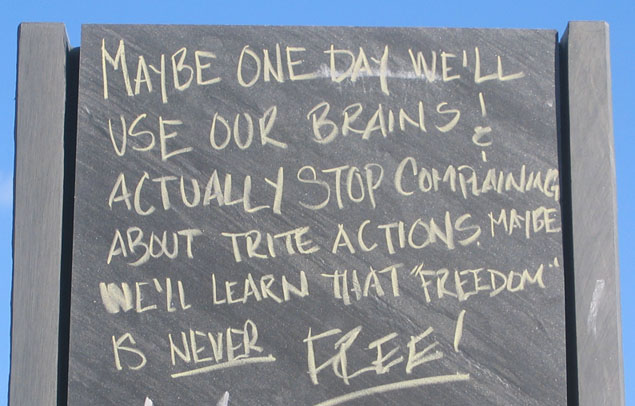 MAYBE ONE DAY WE'LL
USE OUR BRAINS! &
ACTUALLY STOP COMPLAINING
ABOUT TRITE ACTIONS. MAYBE
WE'LL LEARN THAT "FREEDOM"
IS NEVER FREE!